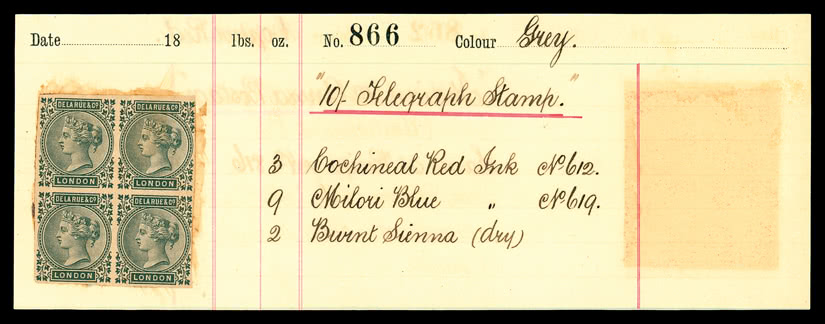 Date 18 lbs. oz. No. 866 Colour Grey.
"10/- Telegraph Stamp."
3 Cochineal Red Ink No 612.
9 Milori Blue " No 619.
2 Burnt Sienna (dry)
DE LA RUE & Co DE LA RUE & Co
LONDON LONDON
DE LA RUE & Co DE LA RUE & Co
LONDON LONDON